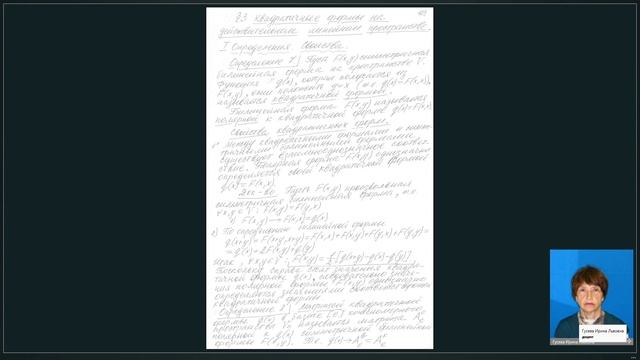 §3 Квадратичные формы на
действительном линейном пространстве.
I Определения. Свойства.
Определение 1] Пусть F(x,y) симметричная
билинейная форма на пространстве V.
Функция g(x), которая получается из
F(x,y), если положить y=x (т.е. g(x)=F(x,x)),
называется квадратичной формой.
Билинейная форма F(x,y) называется
полярной к квадратичной форме g(x)=F(x,x)
Свойства квадратичных форм.
1° Между квадратичными формами и
билинейными формами
существует взаимнооднозначное соответ-
ствие. Полярная форма F(x,y) однозначно
определяется своей квадратичной формой
g(x)=F(x,x).
Док-во Пусть F(x,y) произвольная
симметричная билинейная форма, т.е.
∀x,y∈V: F(x,y)=F(y,x)
1) F(x,y) → F(x,x)=g(x)
2) По определению билинейной формы
g(x+y)=F(x+y,x+y)=F(x,x)+F(x,y)+F(y,x)+F(y,y)=
=g(x)+2F(x,y)+g(y)
∀x,y∈V: F(x,y)=½[g(x+y)-g(x)-g(y)]
Поскольку справа стоят значения квадра-
тичной формы g(x), следовательно значе-
ния полярной формы F(x,y) однозначно
определяются значениями соответствующей
квадратичной формы
Определение 2] Матрицей квадратичной
формы g(x) в базисе [e]
пространства Vn называется матрица
полярной к g(x) симметричной билинейной
формы F(x,y). Т.е. g(x)→
Гусева Ирина Львовна
доцент
Гусева Ирина Львовна